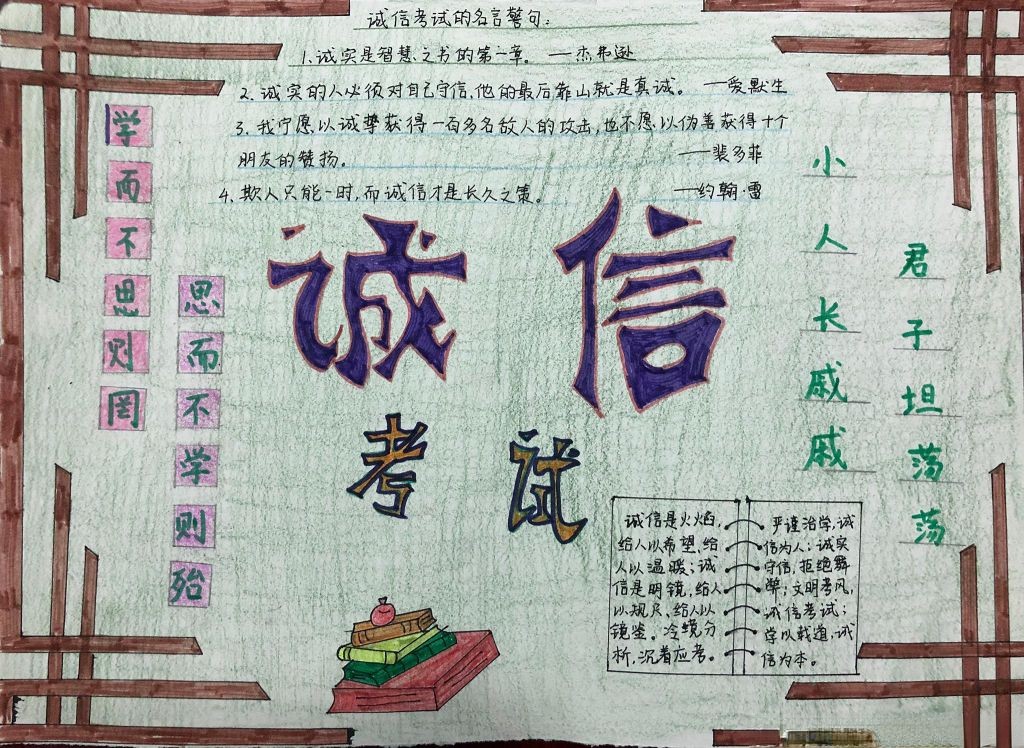 诚信考试的名言警句：
1.诚实是智慧之书的第一章。——杰弗逊
2.诚实的人必须对自己守信,他的最后靠山就是真诚。——爱默生
3.我宁愿以诚挚获得一百多名敌人的攻击,也不愿以伪善获得十个
朋友的赞扬。——裴多菲
4.欺人只能一时,而诚信才是长久之策。——约翰·雷
学而不思则罔
思而不学则殆
诚信
考试
君子坦荡荡
小人长戚戚
诚信是火焰,
给人以希望、给
人以温暖；诚
信是明镜,给人
以规尺、给人以
镜鉴。冷静分
析,沉着应考。
严谨治学,诚
信为人；诚实
守信,拒绝舞
弊；文明考风,
诚信考试；
学以载道,诚
信为本。